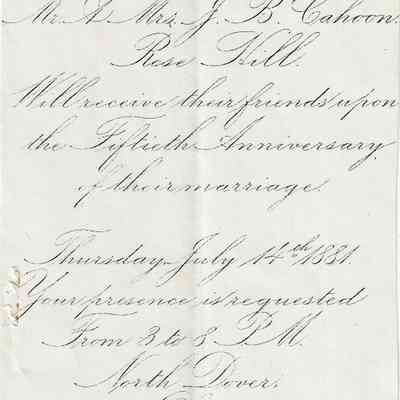 Mr. & Mrs. J. B. Cahoon.
Rose Hill.
Will receive their friends upon
the Fiftieth Anniversary
of their marriage.
Thursday July 14th 1881.
Your presence is requested
From 3 to 8 P.M.
North Dover.